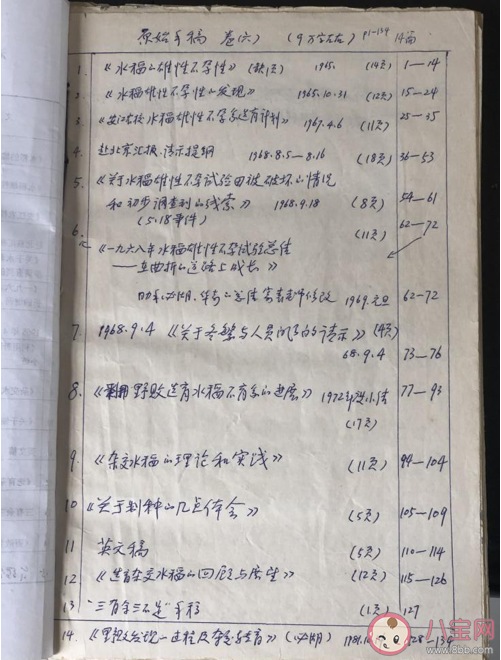 原始手稿 卷(六) (9万字左右) P1-134 14篇
1. 《水稻的雄性不孕性》(缺1页) 1965. (14页) 1—14
2. 《水稻雄性不孕性的发现》 1965.10.31 (12页) 15—24
3. 《安江农校水稻雄性不孕系选育计划》 1967.4.6 (11页) 25—35
4. 赴北京汇报、请示提纲 1968.8.5—8.16 (18页) 36—53
5. 《关于水稻雄性不孕试验田被破坏的情况
和初步调查到的线索》 1968.9.18 (8页) 54—61
(5.18事件)
6. (11页) 62—72
《一九六八年水稻雄性不孕试验总结
——在曲折的道路上成长》
1969.元旦 62—72
7. 1968.9.4 《关于冬繁与人员的请示》 (4页)
68.9.4 73—76
8. 《利用野败选育水稻不育系的进展》 1972年 77—93
(17页)
9 《杂交水稻的理论和实践》 (11页) 94—104
10 《关于制种的几点体会》 (5页) 105—109
11 英文稿 (5页) 110—114
12 《选育杂交水稻的回顾与展望》 (12页) 115—126
13 "三有余三不足"手稿 (1页) 127
14. 128—134
八宝网
www.8bb.com